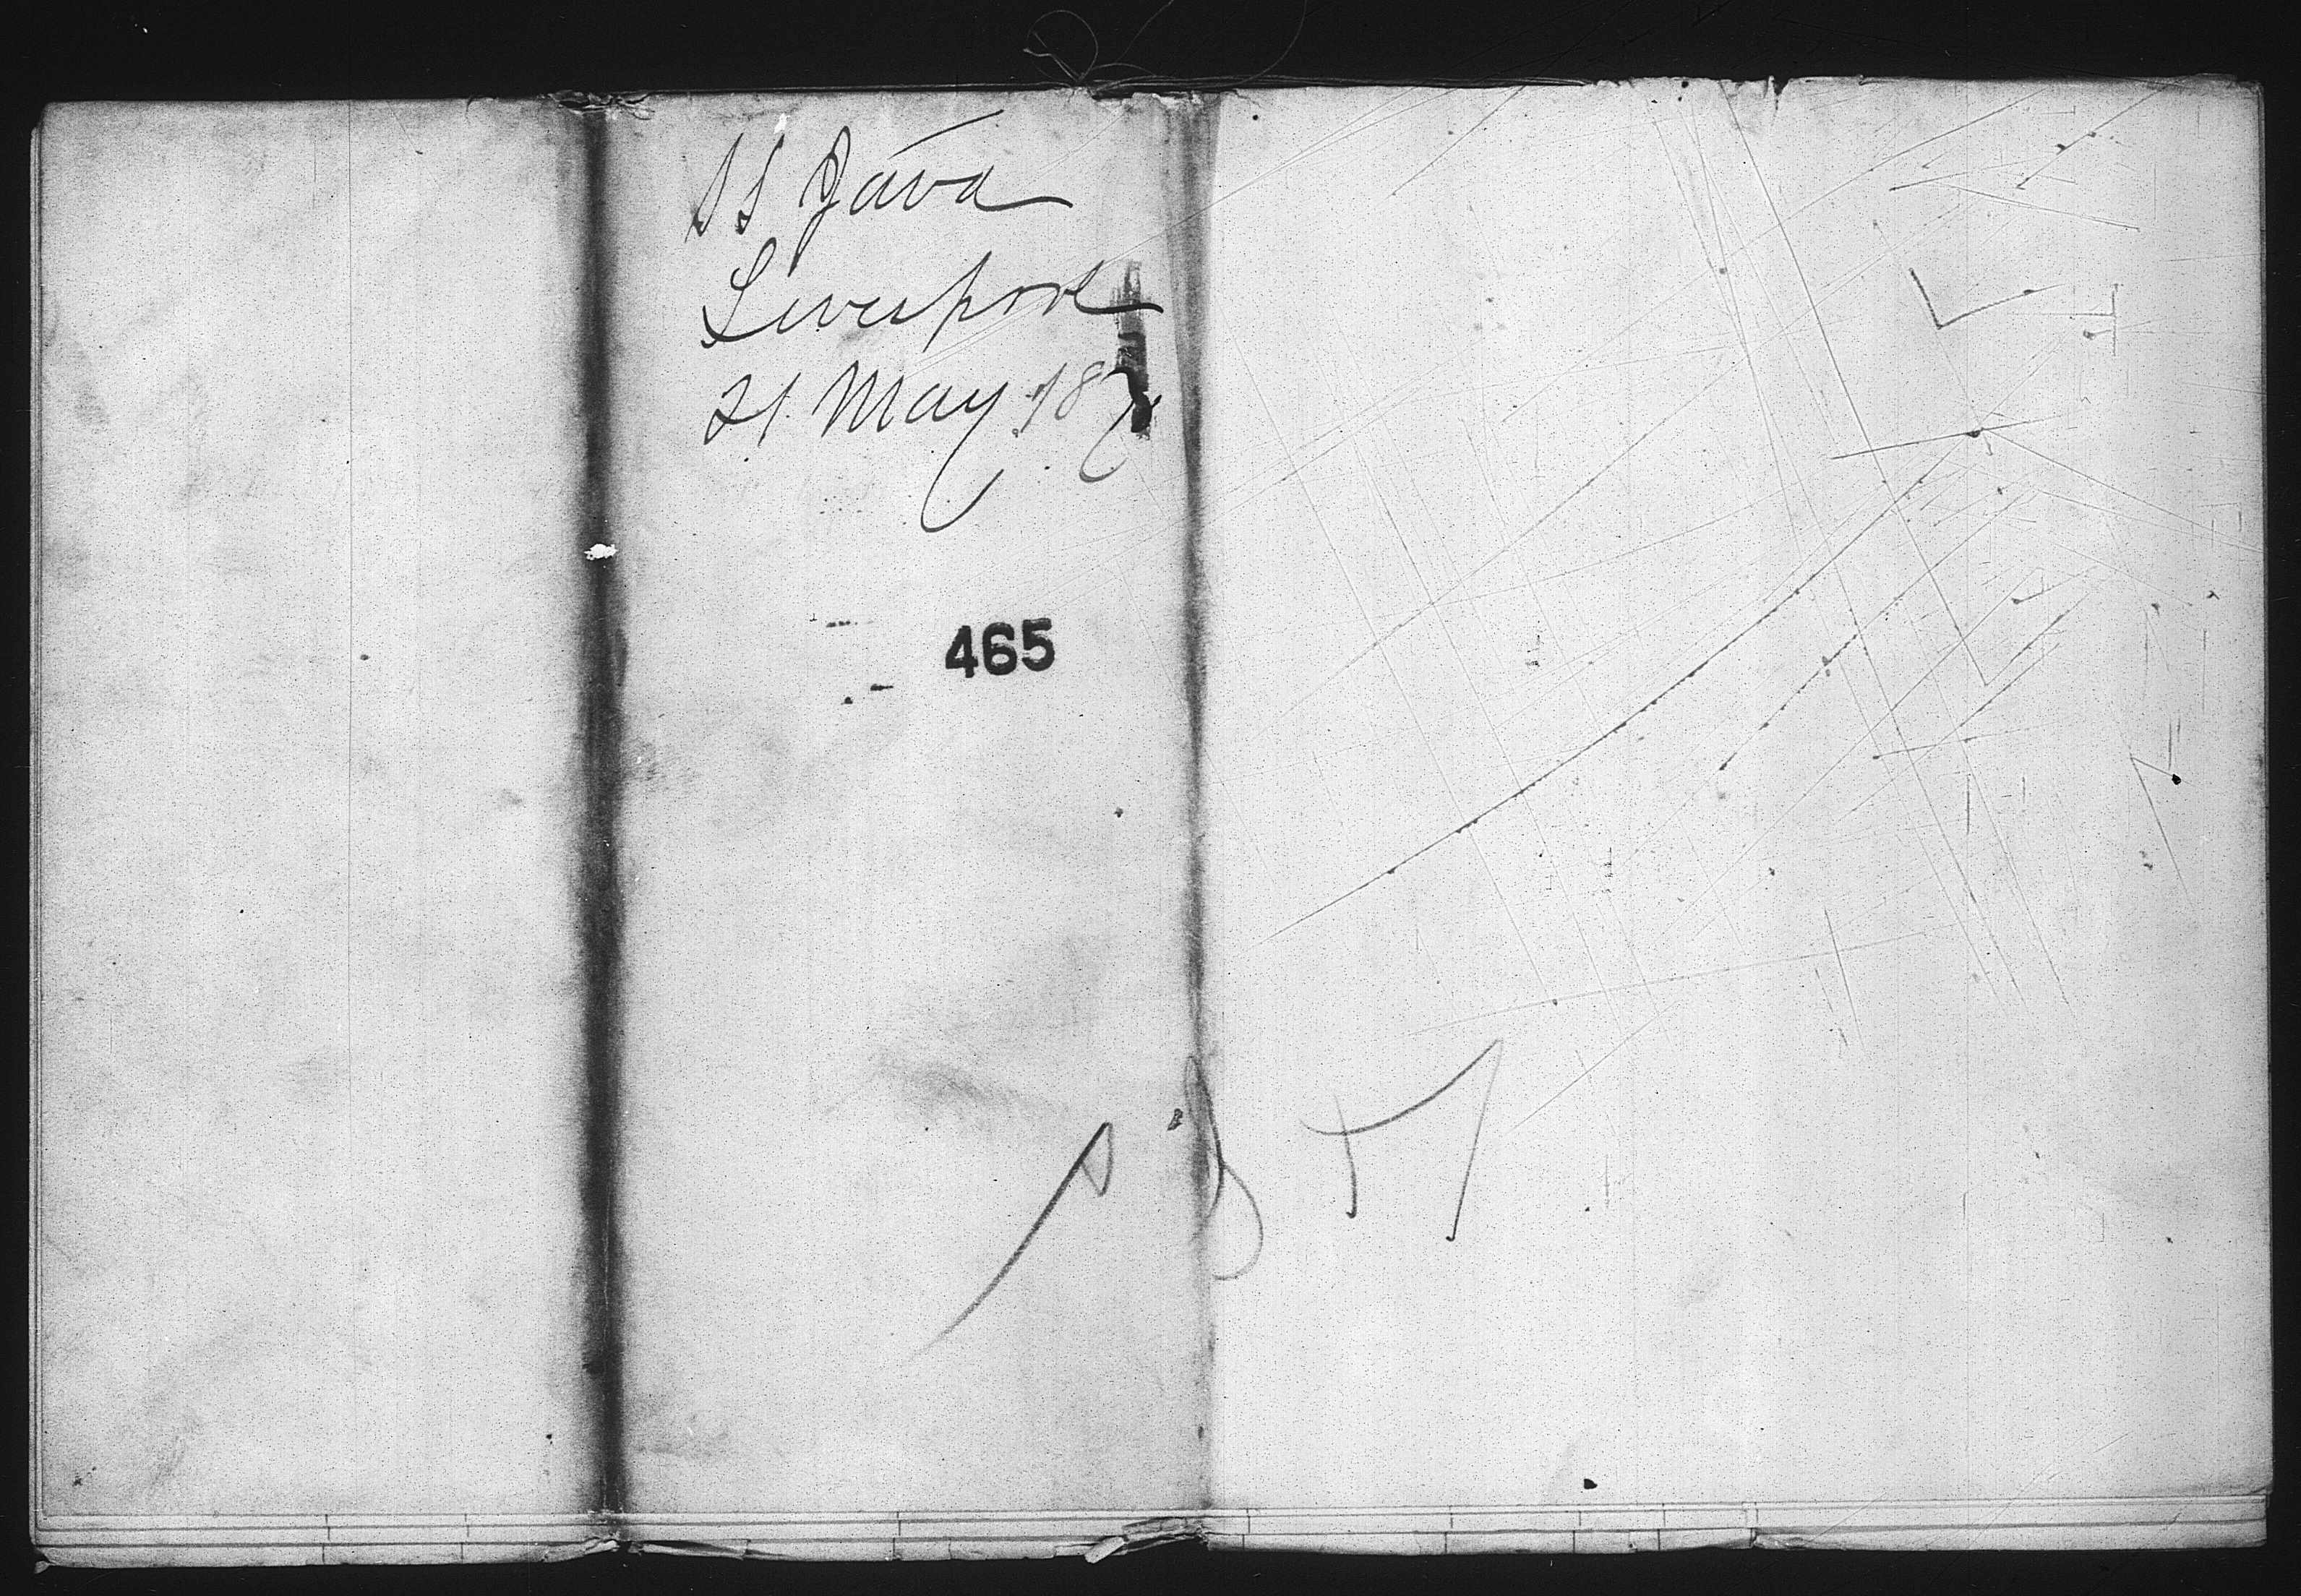 SS Java
Liverpool
21 May 187
465